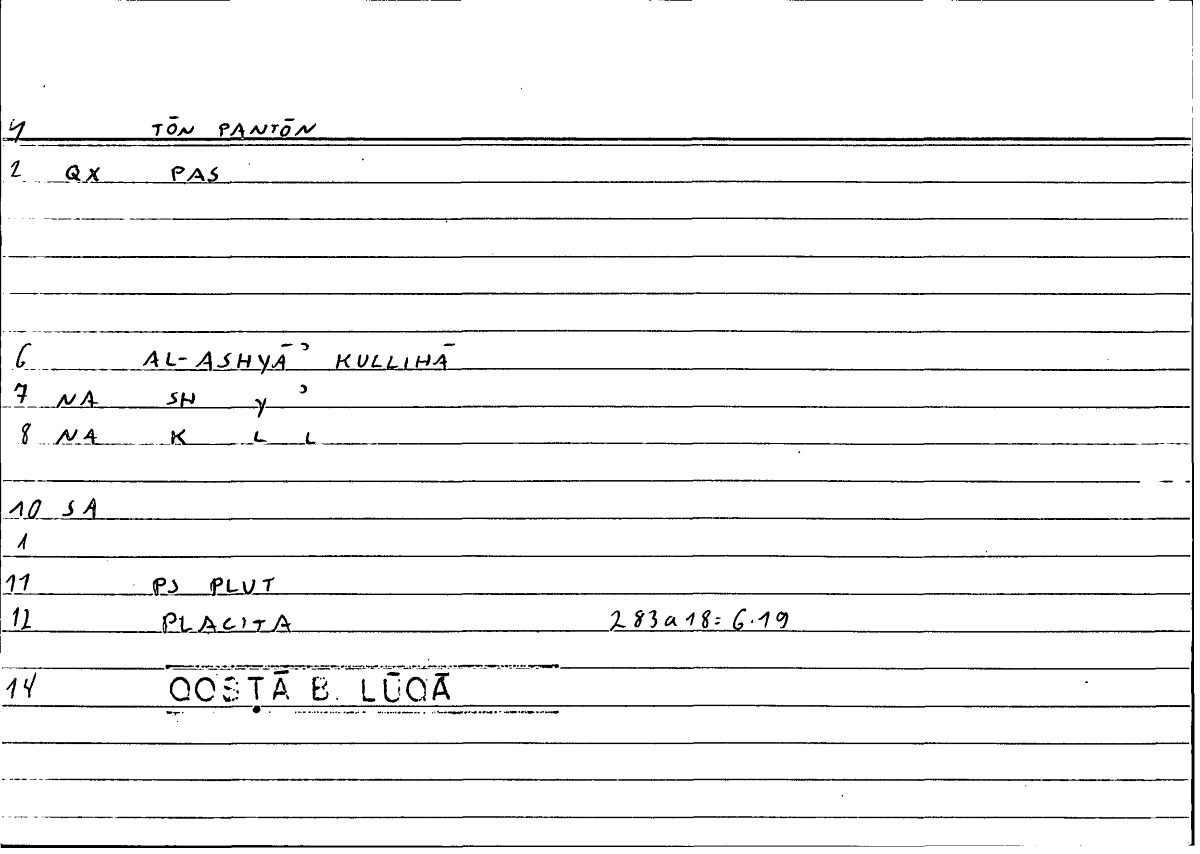 1 TŌN PANTŌN
2 QX PAS
6 AL-ASHYĀʾ KULLIHĀ
7 NA SH Y ʾ
8 NA K L L
10 SA
1
11 PS PLUT
12 PLACITA 283a18: 6.19
14 QOSṬĀ B. LŪQĀ